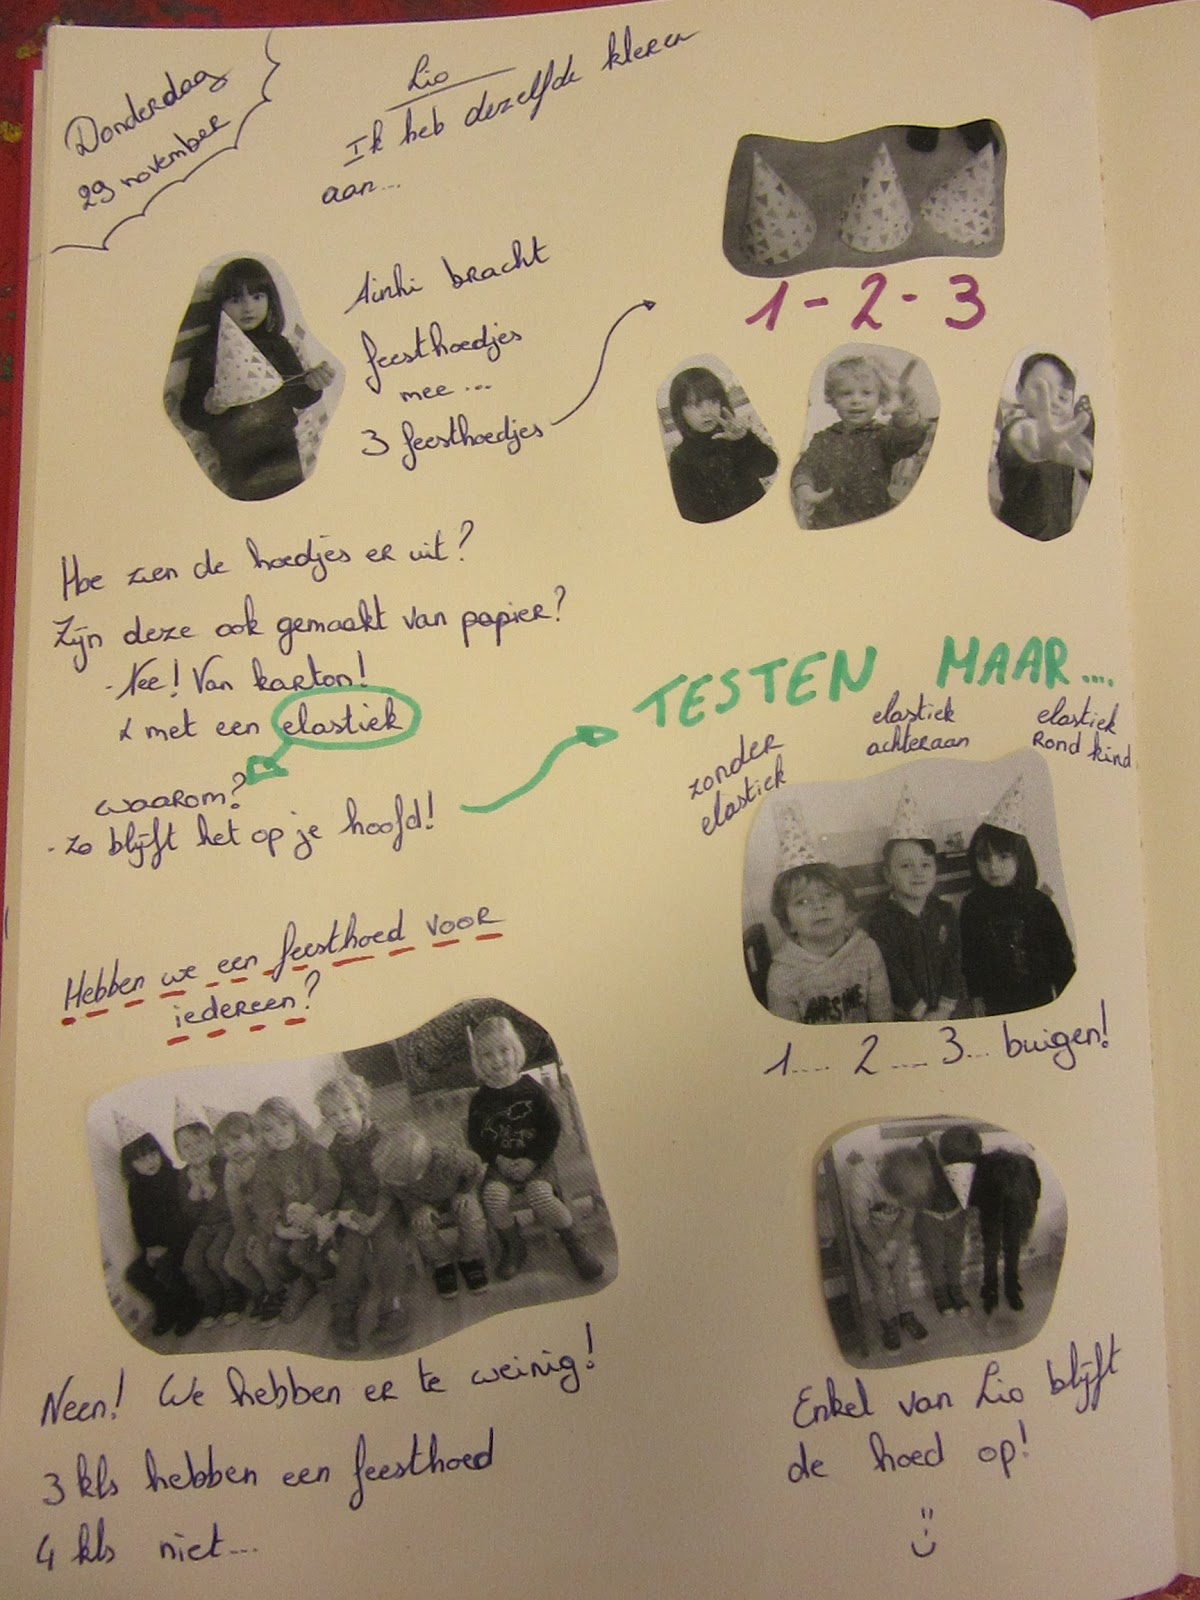 Donderdag
29 november
Lio
Ik heb dezelfde kleren
aan...
Ainhi bracht
feesthoedjes
mee ...
3 feesthoedjes
1 - 2 - 3
Hoe zien de hoedjes er uit?
Zijn deze ook gemaakt van papier?
- Nee! Van karton!
& met een elastiek
waarom?
- zo blijft het op je hoofd!
TESTEN MAAR....
zonder
elastiek
elastiek
achteraan
elastiek
Rond kind
1.... 2 .... 3... buigen!
Enkel van Lio blijft
de hoed op!
Hebben we een feesthoed voor
iedereen?
Neen! We hebben er te weinig!
3 kls hebben een feesthoed
4 kls niet...